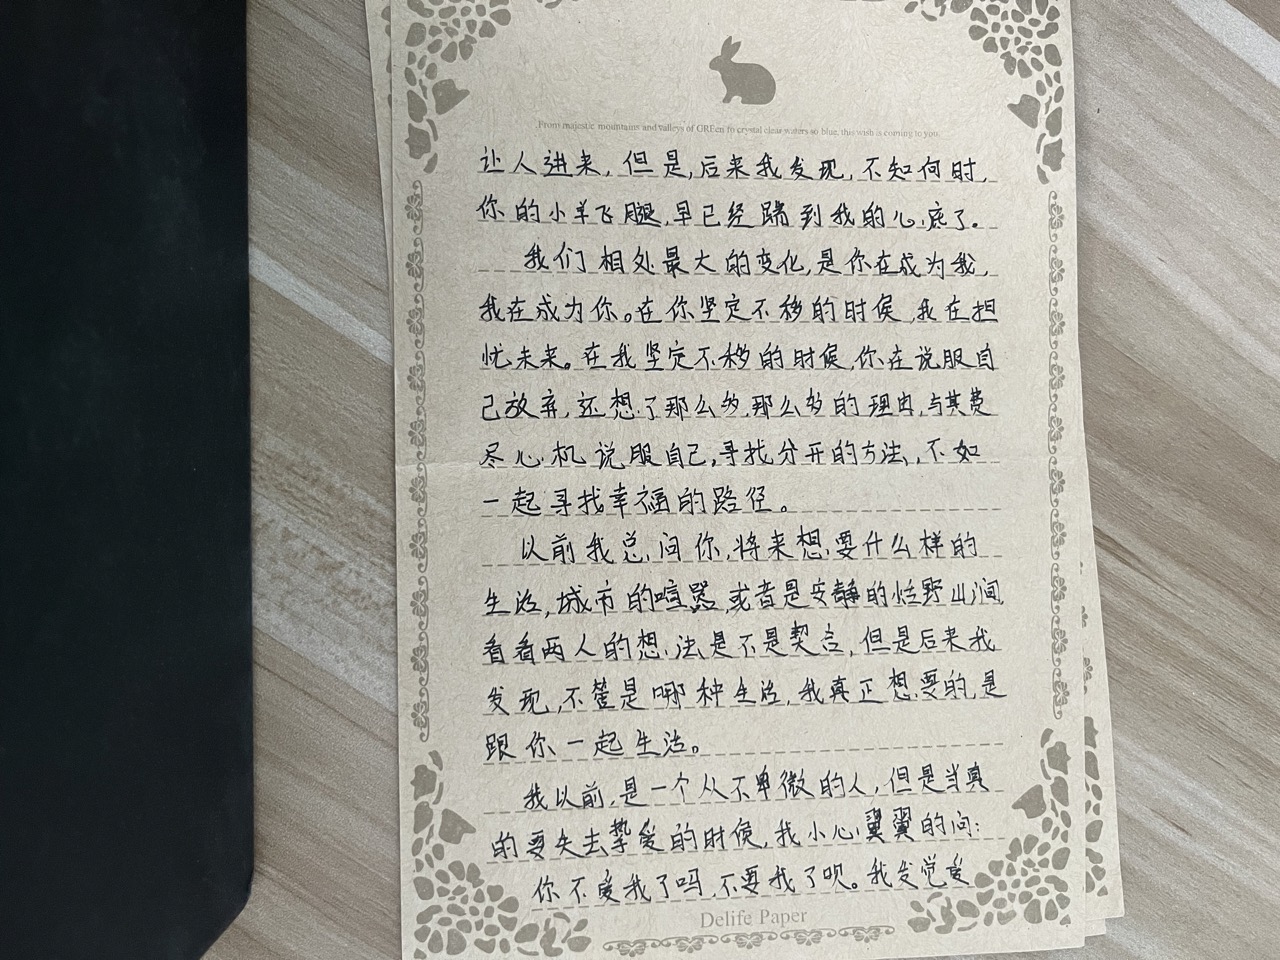 From majestic mountains and valleys of GREen to crystal clear waters so blue, this wish is coming to you.
让人进来，但是，后来我发现，不知何时，
你的小羊飞腿，早已经踏到我的心底了。
我们相处最大的变化，是你在成为我，
我在成为你。在你坚定不移的时候，我在担
忧未来。在我坚定不移的时候，你在说服自
己放弃，还想了那么多，那么多的理由，与其费
尽心机说服自己，寻找分开的方法，不如
一起寻找幸福的路径。
以前我总问你，将来想要什么样的
生活，城市的喧嚣，或者是安静的田野山涧，
看看两人的想法是不是契合，但是后来我
发现，不管是哪种生活，我真正想要的，是
跟你一起生活。
我以前，是一个从不卑微的人，但是当真
的要失去挚爱的时候，我小心翼翼的问：
你不爱我了吗，不要我了呗。我发觉爱
Delife Paper